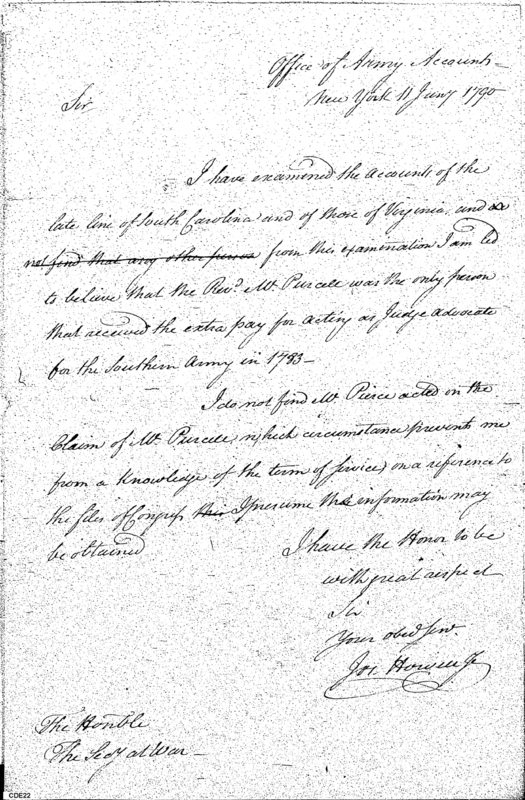 Office of Army Accounts
New York 11 Juny 1790
Sir
I have examined the accounts of the
late line of South Carolina and of those of Virginia, and do
not find that any other person from this examination I am led
to believe that the Revd. Mr. Purcell was the only person
that received the extra pay for acting as Judge Advocate
for the Southern Army in 1783—
I do not find Mr. Pierce acted on the
Claim of Mr. Purcell, which circumstance prevents me
from a Knowledge of the term of service, on a reference to
the files of Congress this I presume the information may
be obtained
I have the Honor to be
with great respect
Sir
Your obed Serv.
Jos. Howell Jr
The Honble
The Secy at War—
CDE22